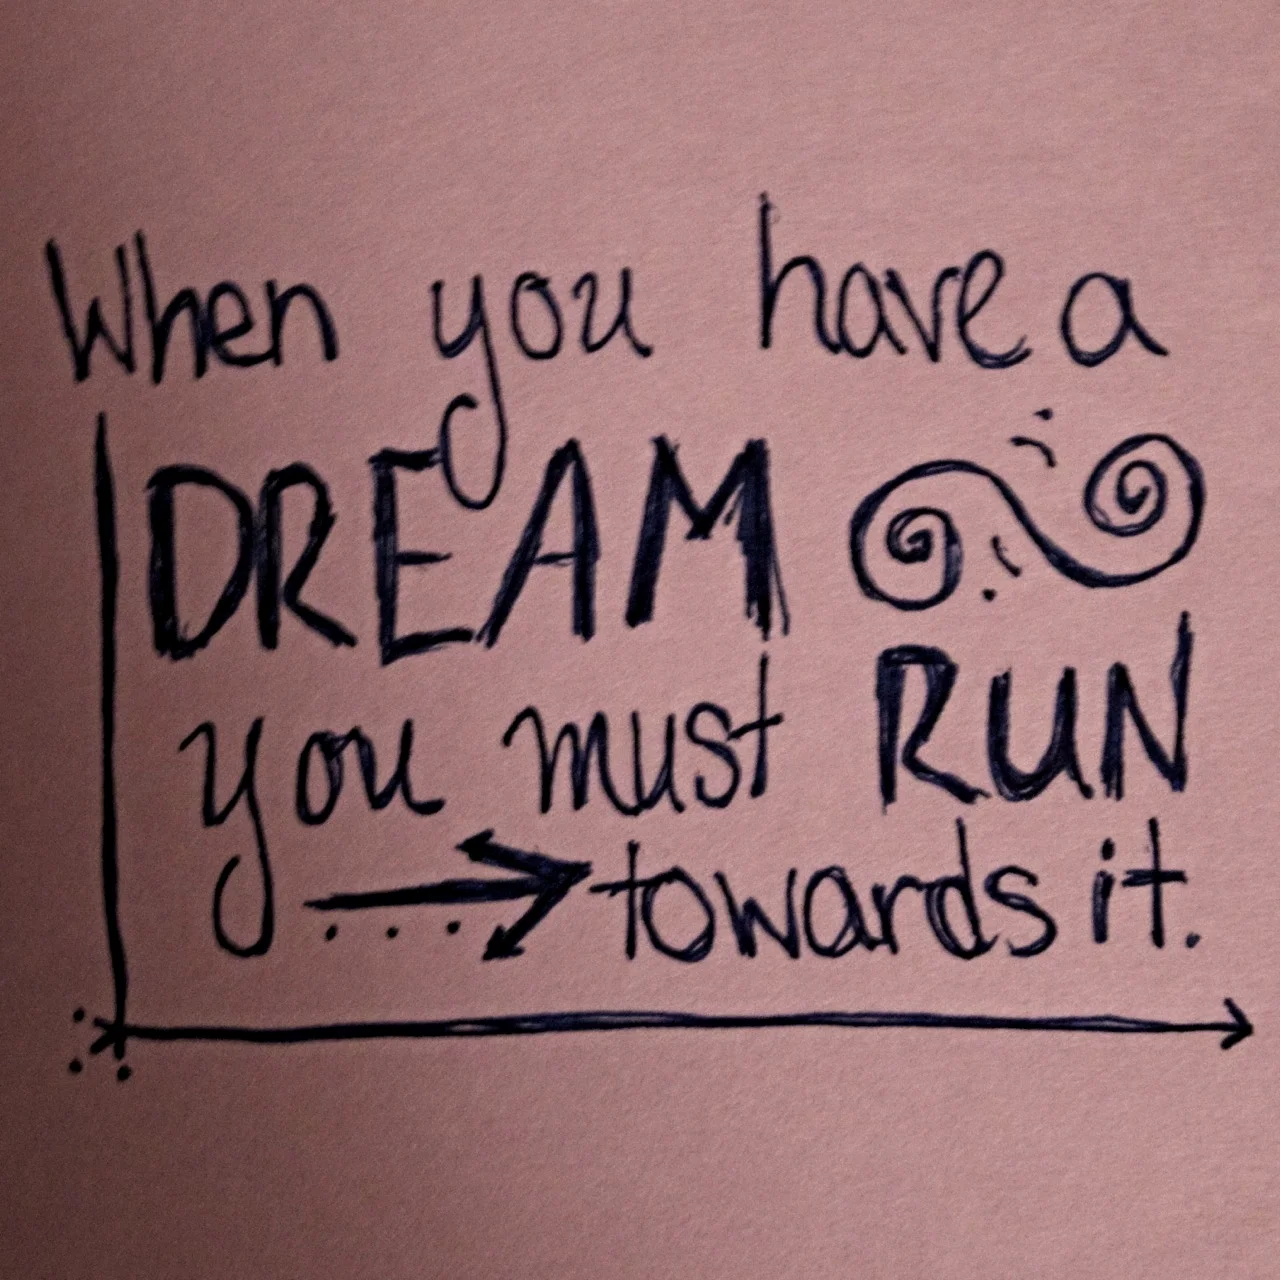 When you have a
DREAM
you must RUN
towards it.